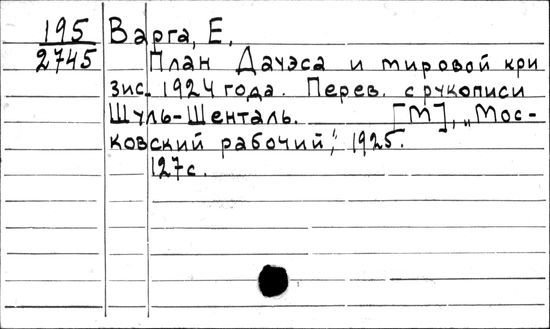 195 Варга, Е.
2745 План Дауэса и мировой кри
зис 1924 года. Перев. с рукописи
Шуль-Шенталь. [М], „Мос-
ковский рабочий", 1925.
127 с.